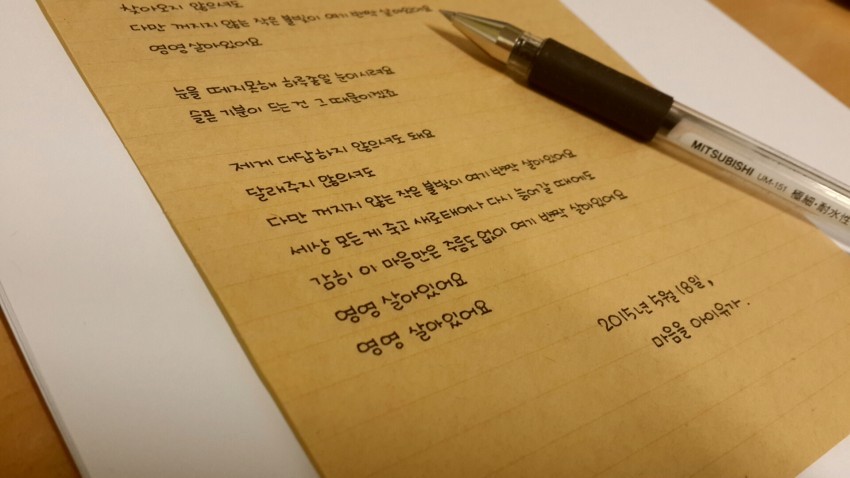 찾아오지 않으셔도
다만 꺼지지 않는 작은 불빛이 여기 반짝 살아있어요
영영 살아있어요
눈을 떼지못해 하루종일 눈이시려요
슬픈 기분이 드는 건 그 때문이겠죠
제게 대답하지 않으셔도 돼요
달래주지 않으셔도
다만 꺼지지 않는 작은 불빛이 여기 반짝 살아있어요
세상 모든 게 죽고 새로태어나 다시 늙어갈 때에도
감히 이 마음만은 주름도 없이 여기 반짝 살아있어요
영영 살아있어요
영영 살아있어요
2015년 5월 18일,
마음을 아이유가.
MITSUBISHI UM-151 極細・耐水性